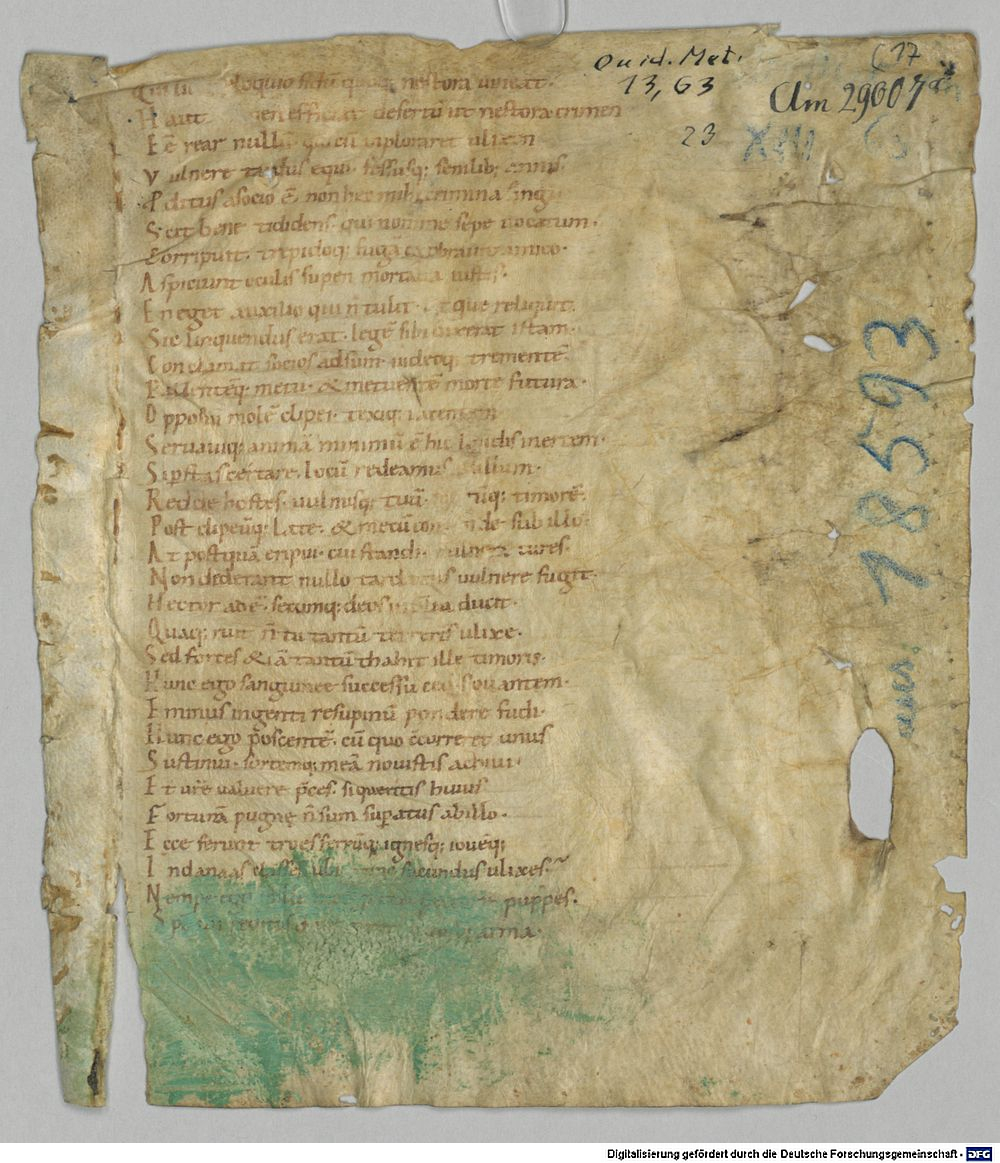 Ouid. Met.
13, 63
23
Clm 29007
XIII 63
18593
loquio fidū quoq; nestora uincat.
Haut efficiat desertū ut nestora crimen
Eē rear nullū qui cū imploraret ulixen
Vulnere tardus equi. fessusq; senilib; annis.
Pditus a socio ē. non hec mihi crimina fingi
Scit bene tididens. qui nomine sepe uocatum.
Corripuit. trepidoq; fugā amico.
Aspiciunt oculis superi mortalia iustis.
En eget auxilio qui ñ tulit. utque reliquit
Sic linquendus erat. legē sibi dixerat istam.
Conclamat socios adsum uideoq; trementē.
Pallentēq; metu. & metuentē morte futura.
Opposui molē clipei. texiq; iacentem
Seruauiq; animā minimū ē hic laudis inertem.
Si pstas certare. locū redeamus
Redde hostes. uulnusq; tuū. timorē.
Post clipeūq; late. & mecū con sub illo.
At postquā eripui. cui standi uulnera uires.
Non dederant nullo tardatus uulnere fugit.
Hector adē. secumq; deos in ducit.
Quaq; ruit ñ tu tantū terreris ulixe.
Sed fortes &iā tantū thahit ille timoris.
Hunc ego sanguinee successu cedis ouantem.
Eminus ingenti resupinū pondere fudi.
Hunc ego poscentē. cū quo ccorreret unus
Sustinui. sortemq; meā nouistis achiui.
Et urē ualuere pces. si queritis huius
Fortunā pugnę ñ sum supatus ab illo.
Ecce ferunt troes ferrūq; ignesq; iouēq;
In danaas classes ubi nunc facundus ulixes.
Nempe puppes.
arma.
Digitalisierung gefördert durch die Deutsche Forschungsgemeinschaft - DFG